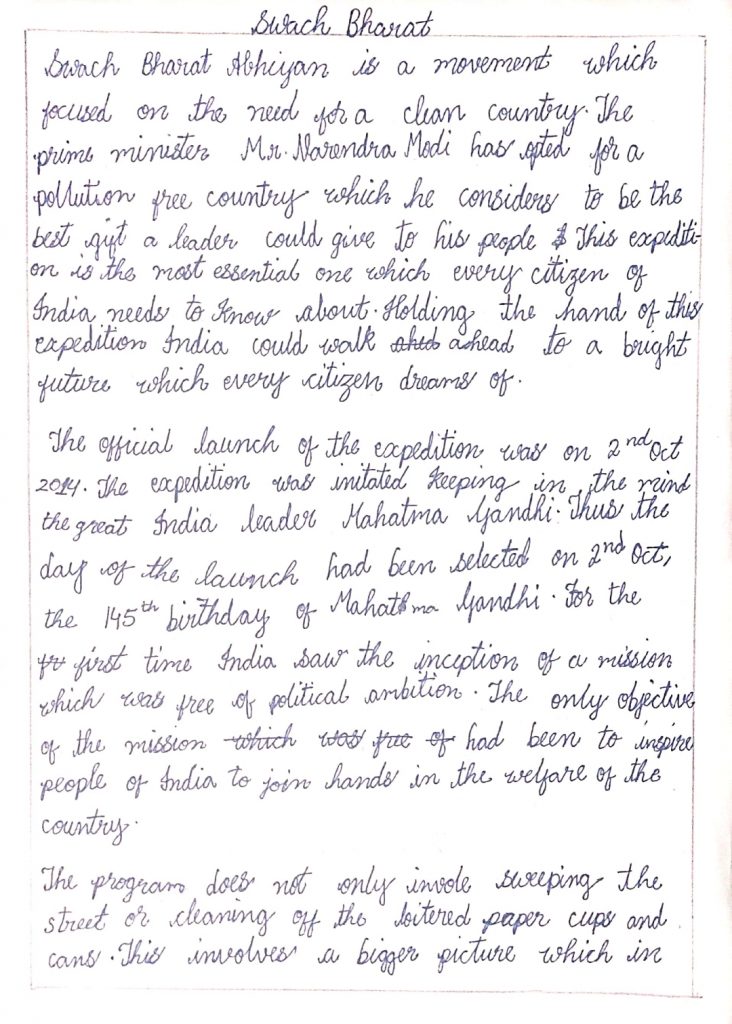 Swach Bharat
Swach Bharat Abhiyan is a movement which
focused on the need for a clean country. The
prime minister Mr. Narendra Modi has opted for a
pollution free country which he considers to be the
best gift a leader could give to his people This expediti-
on is the most essential one which every citizen of
India needs to know about. Holding the hand of this
expedition India could walk ahead to a bright
future which every citizen dreams of.
The official launch of the expedition was on 2nd Oct
2014. The expedition was initated keeping in the mind
the great India leader Mahatma Gandhi. Thus the
day of the launch had been selected on 2nd Oct,
the 145th birthday of Mahatma Gandhi. For the
first time India saw the inception of a mission
which was free of political ambition. The only objective
of the mission which was free of had been to inspire
people of India to join hands in the welfare of the
country.
The program does not only invole sweeping the
street or cleaning off the litered paper cups and
cans. This involves a bigger picture which in